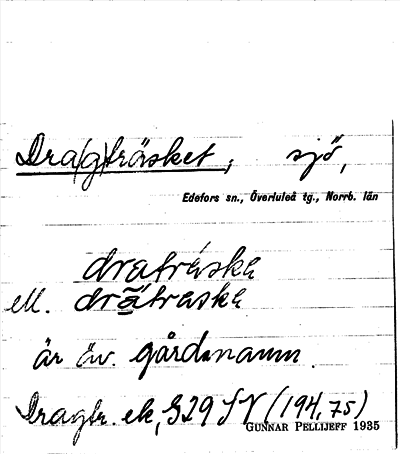 Dra(g)träsket, sjö,
Edefors sn., Överluleå tg., Norrb. län
dratráska
ell. drãtraska
är äv. gårdsnamn.
Dragtr. ek, G29 SV (194,75)
GUNNAR PELLIJEFF 1935